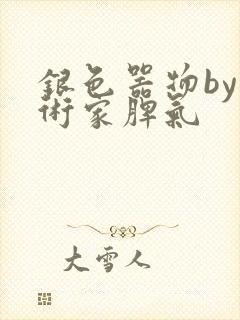 銀色器物by
術家脾氣
大雪人